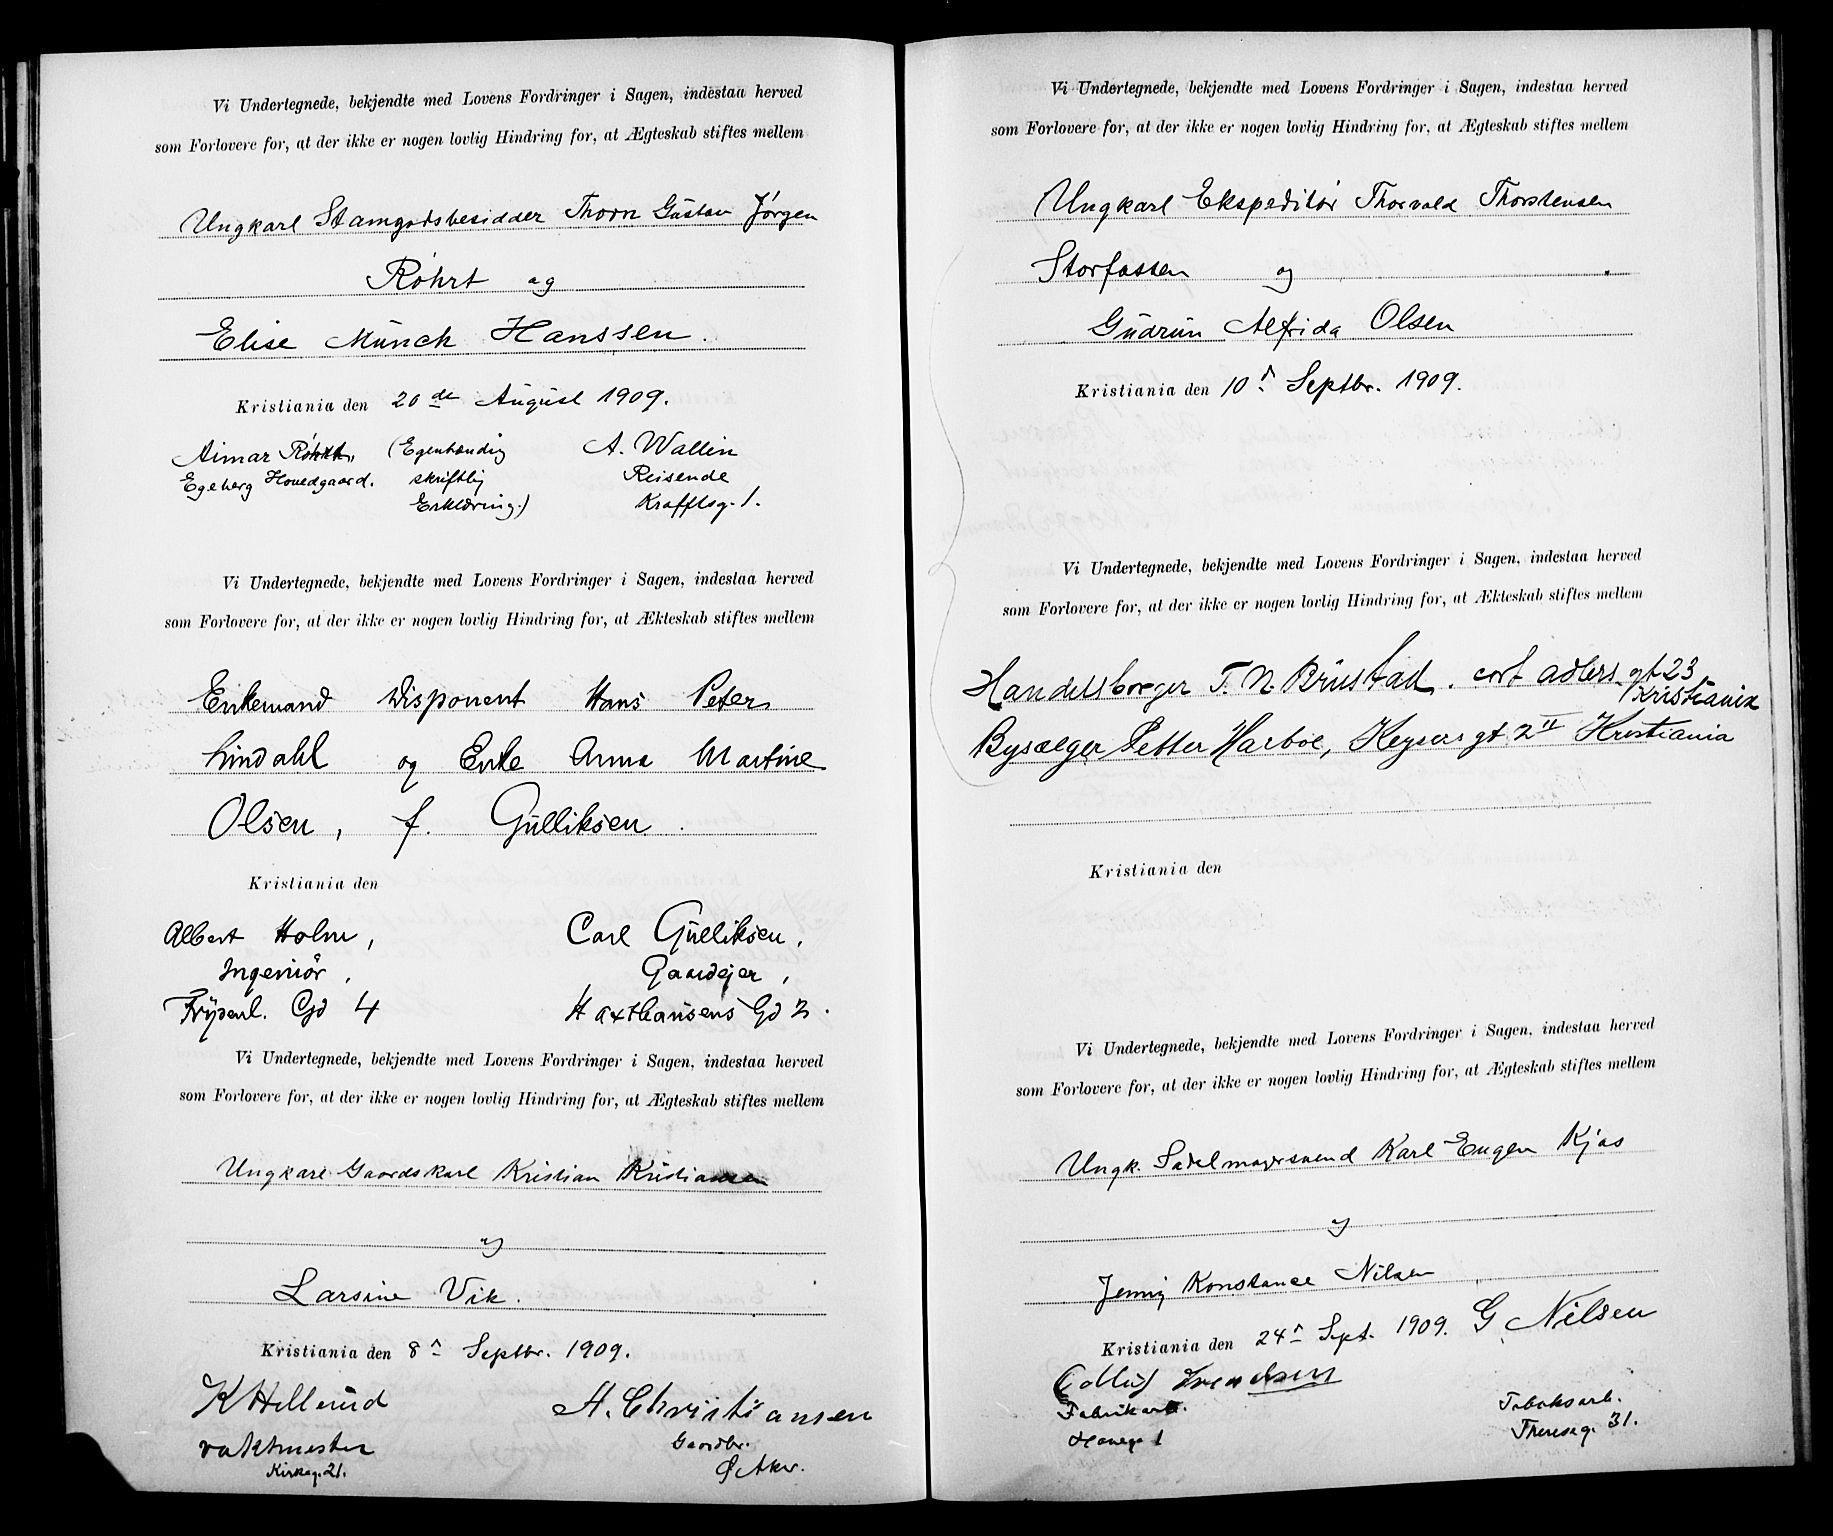 Vi Undertegnede, bekjendte med Lovens Fordringer i Sagen, indestaa herved
som Forlovere for, at der ikke er nogen lovlig Hindring for, at Ægteskab stiftes mellem
Ungkarl Stamgodsbesidder Thorn Gustav Jørgen
Røhrt og
Elise Münch Hanssen.
Kristiania den 20de August 1909.
Aimar Røhrt, (Egenhændig A. Wallin
Egeberg Hovedgaard. skriftlig Reisende
Erklæring.) Krafftsg. 1.
Vi Undertegnede, bekjendte med Lovens Fordringer i Sagen, indestaa herved
som Forlovere for, at der ikke er nogen lovlig Hindring for, at Ækteskab stiftes mellem
Enkemand Disponent Hans Peter
Lindahl og Enke Anna Martine
Olsen, f. Gulliksen.
Kristiania den
Albert Holm, Carl Gulliksen,
Ingeniør, Gaardejer,
Frydenl. Gd 4 Haxthausens Gd 2.
Vi Undertegnede, bekjendte med Lovens Fordringer i Sagen, indestaa herved
som Forlovere for, at der ikke er nogen lovlig Hindring for, at Ægteskab stiftes mellem
Ungkarl Gaardskarl Kristian Kristiansen
og
Larsine Vik.
Kristiania den 8n Septbr. 1909.
K Hellerud A. Christiansen
vaktmester Gaardbr.
Kirkeg. 21. Ø Aker.
Vi Undertegnede, bekjendte med Lovens Fordringer i Sagen, indestaa herved
som Forlovere for, at der ikke er nogen lovlig Hindring for, at Ægteskab stiftes mellem
Ungkarl Ekspeditør Thorvald Thorstensen
Storfossen og
Gudrun Alfrida Olsen
Kristiania den 10n Septbr. 1909.
Vi Undertegnede, bekjendte med Lovens Fordringer i Sagen, indestaa herved
som Forlovere for, at der ikke er nogen lovlig Hindring for, at Ækteskab stiftes mellem
Handelsborger T. N. Brustad. cort adlers gt 23
Kristiania
Bysælger Petter Harboe, Keysers gt 2 II Kristiania
Kristiania den
Vi Undertegnede, bekjendte med Lovens Fordringer i Sagen, indestaa herved
som Forlovere for, at der ikke er nogen lovlig Hindring for, at Ægteskab stiftes mellem
Ungk. Sadelmagersvend Karl Eugen Kjos
og
Jenny Konstance Nilsen
Kristiania den 24n Sept. 1909. G. Nilsen
Svendsen
Fabrikarb. Tobaksarb.
Thereseg. 31.